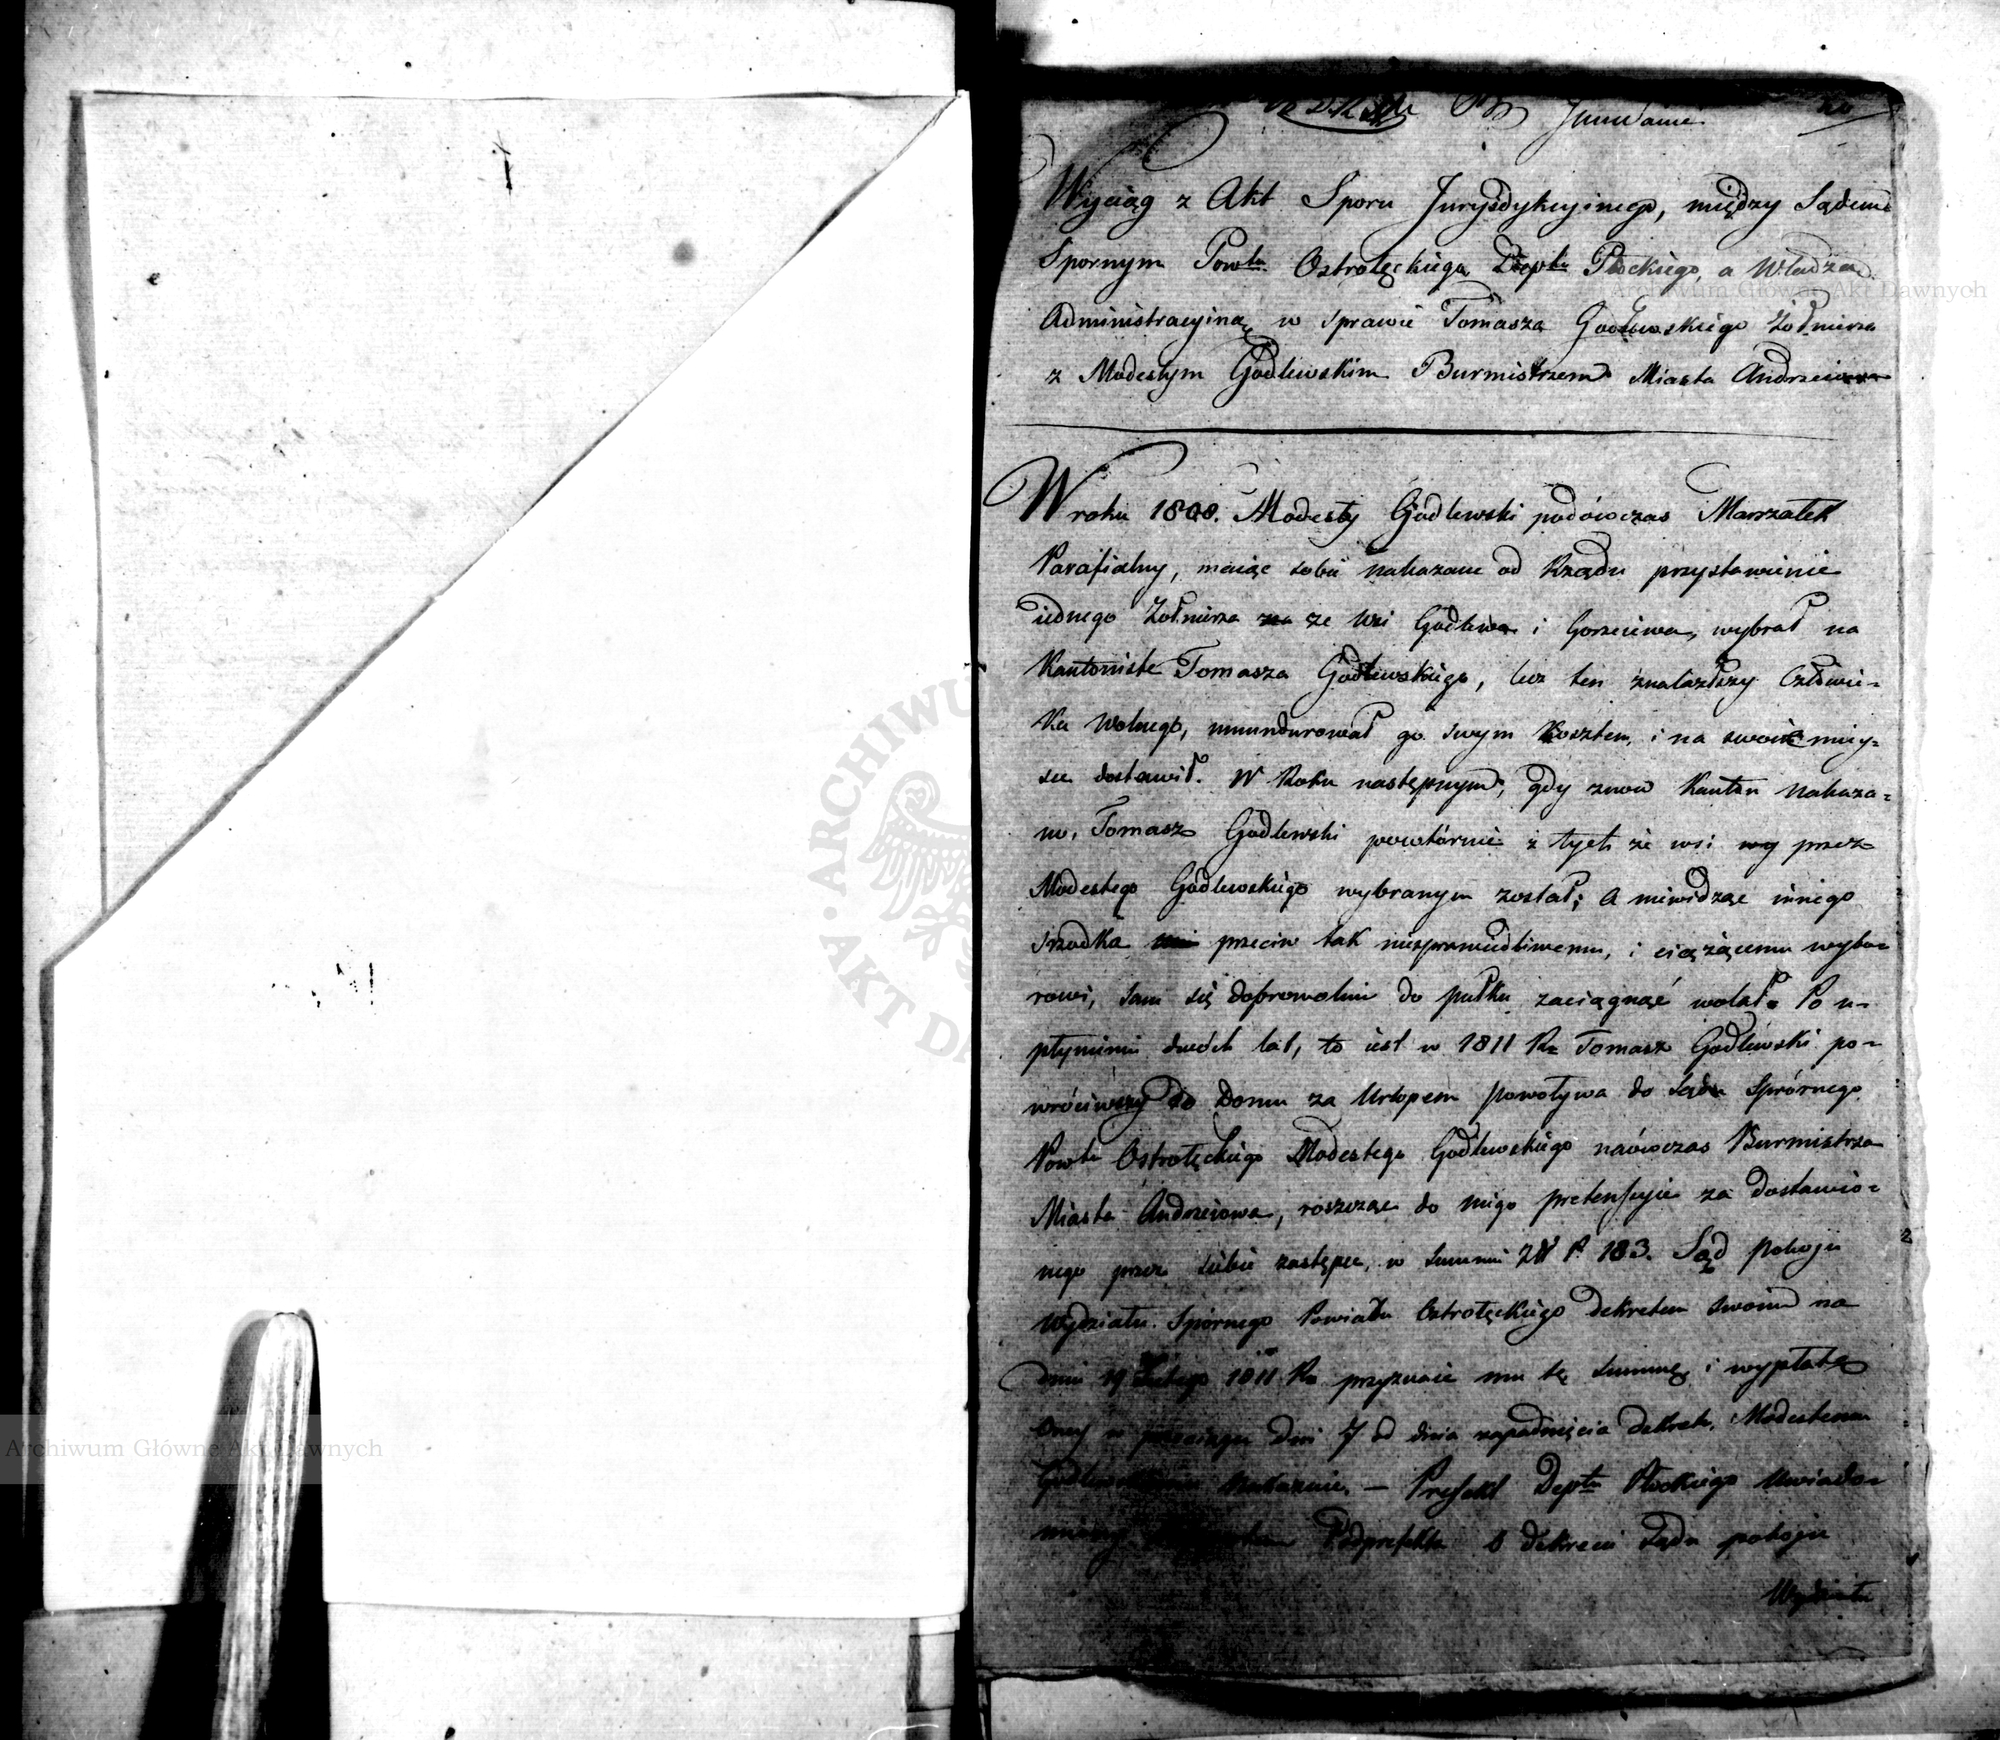 Wyciąg z Akt Sporu Jurysdykcyinego, między Sądem
Spornym Powtu Ostrołęckiego Deptu Płockiego, a Władzą
Administracyiną w sprawie Tomasza Godlewskiego Żołnierza
z Modestym Godlewskim Burmistrzem Miasta Andrzeiowa
W roku 1808. Modesty Godlewski podówczas Marszałek
Parafialny, maiąc sobie nakazane od Rządu przystawienie
iednego Żołnierza ze Wsi Godlewa i Gorzeiewa, wybrał na
Kantonistę Tomasza Godlewskiego, lecz ten znalazłszy Człowie-
ka Wolnego, umundurował go swym kosztem, i na swoie miey-
sce dostawił. W Roku następnym, gdy znowu Kanton nakaza-
no, Tomasz Godlewski powtórnie z tych że wsi przez
Modestego Godlewskiego wybranym został; a niewidząc innego
srzodka przeciw tak niesprawiedliwemu, i ciążącemu wybo-
rowi, sam się dobrowolnie do pułku zaciągnąć wolał. Po u-
płynieniu dwóch lat, to iest w 1811 Rc Tomasz Godlewski po-
wróciwszy do Domu za Urlopem powoływa do Sądu Spórnego
Powtu Ostrołęckiego Modestego Godlewskiego naówczas Burmistrza
Miasta Andrzeiowa, roszcząc do niego pretensyie za dostawio-
nego przez siebie zastępcę, w summie Zł P. 183. Sąd pokoju
Wydziału Spornego Powiatu Ostrołęckiego dekretem swoim na
dniu 19 Lutego 1811 Rc przyznaie mu tę summę i wypłatę
oney w przeciągu dni 7 od dnia zapadnięcia dekretu, Modestemu
Godlewskiemu nakazuie. — Prefekt Deptu Płockiego uwiado-
miony Podprefekta o dekrecie Sądu pokoju
Wydziału
Archiwum Główne Akt Dawnych
Archiwum Główne Akt Dawnych